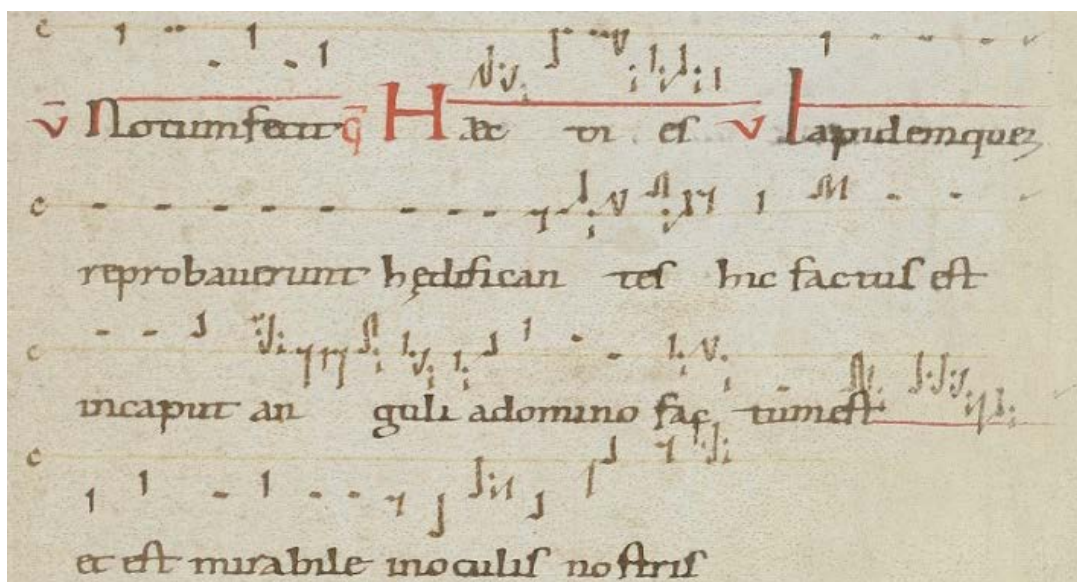 c
v̄ Notum fecit ꝗ̄ Haec di es v Lapidemque
c
reprobauerunt hędifican tes hic factus est
c
incaput an guli adomino fac tum est
c
et est mirabile inoculis nostris